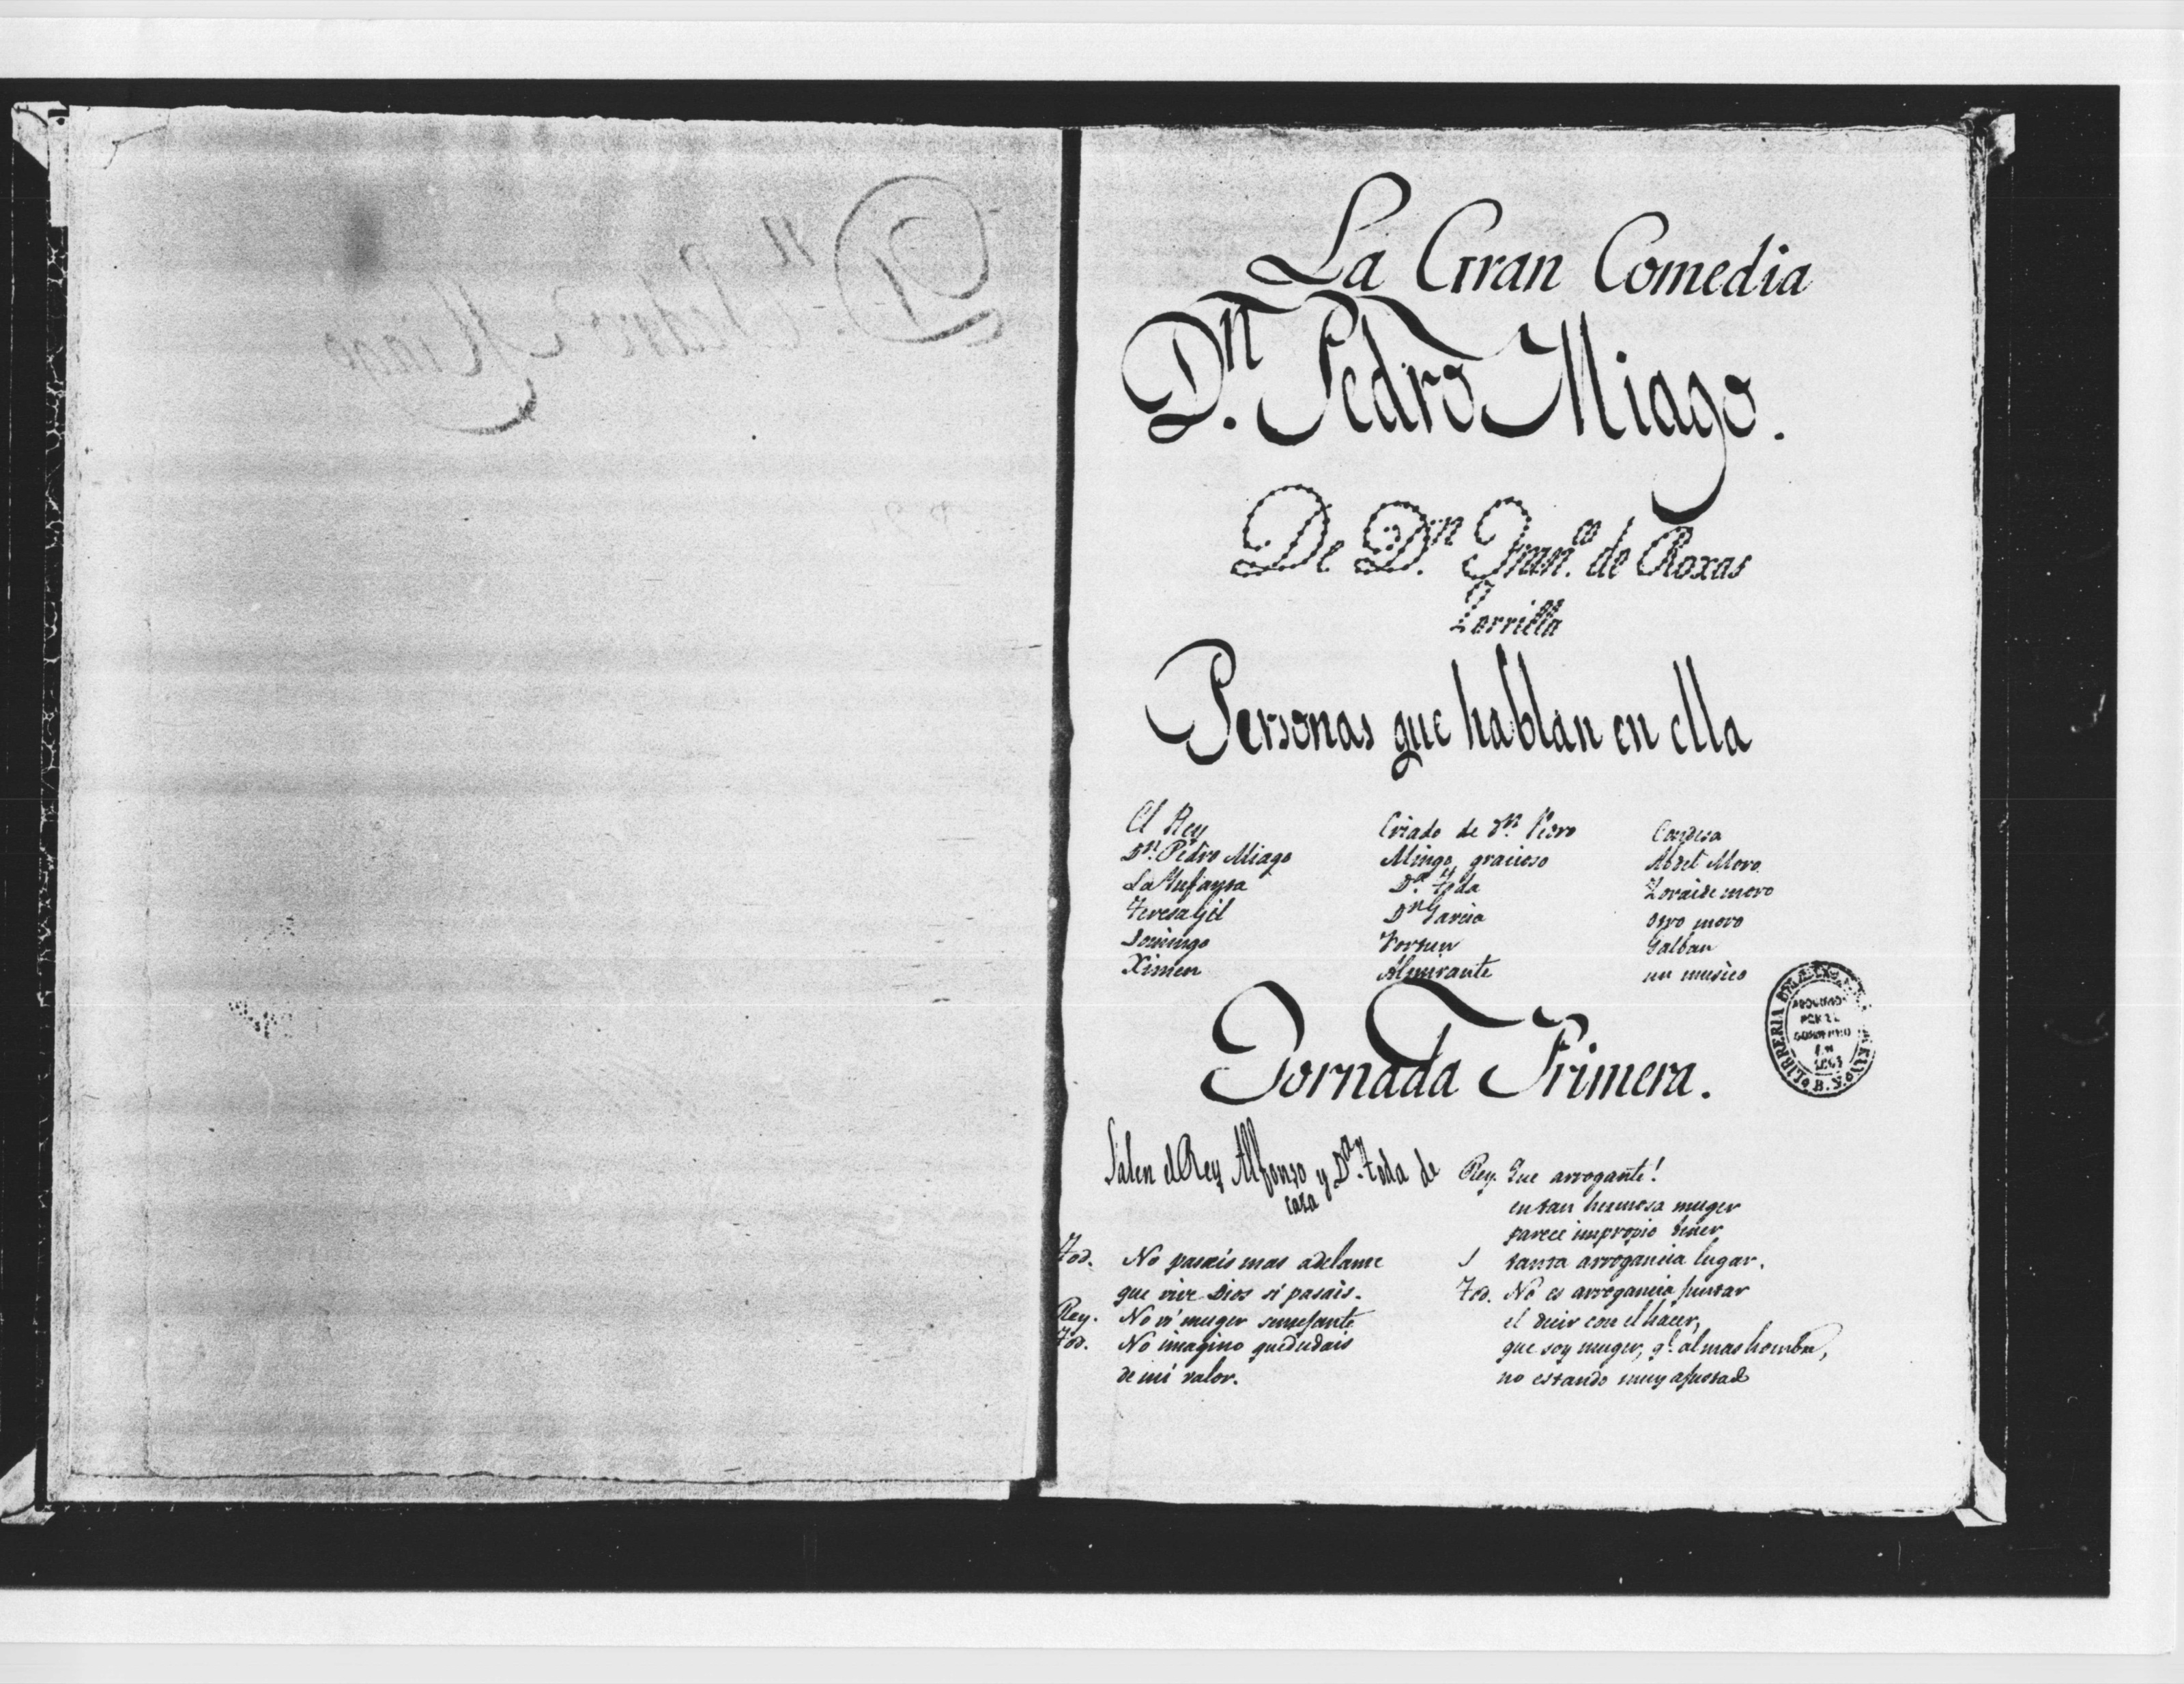 La Gran Comedia
Dn. Pedro Miago.
De Dn. Fran.co de Roxas
Zorrilla
Personas que hablan en ella
El Rey
Dn. Pedro Miago
La Infanta
Teresa Gil
Domingo
Ximen
Criado de Dn. Pedro
Mingo gracioso
Da. Toda
Dn. Garcia
Fortun
Almirante
Condesa
Abdel Moro
Zoraide moro
otro moro
Galban
un musico
Jornada Primera.
LIBRERIA
ADQUIRIDA
POR EL
GOBIERNO
EN
B. N.
Salen el Rey Alfonso y Da. Toda de
caza
Tod. No paseis mas adelante
que vive Dios si pasais.
Rey. No vi muger semejante
Tod. No imagino que dudais
de mi valor.
Rey. Que arrogante!
en tan hermosa muger
parece impropio tener
tanta arrogancia lugar.
Tod. No es arrogancia juntar
el decir con el hacer,
que soy muger, q.e al mas hombre,
no estando muy